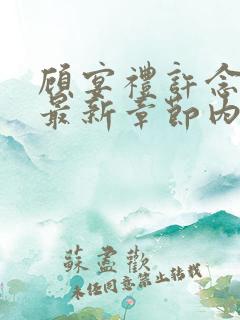 顾宴禮許念
最新章節内
蘇盡歡
未任同意禁止轉載